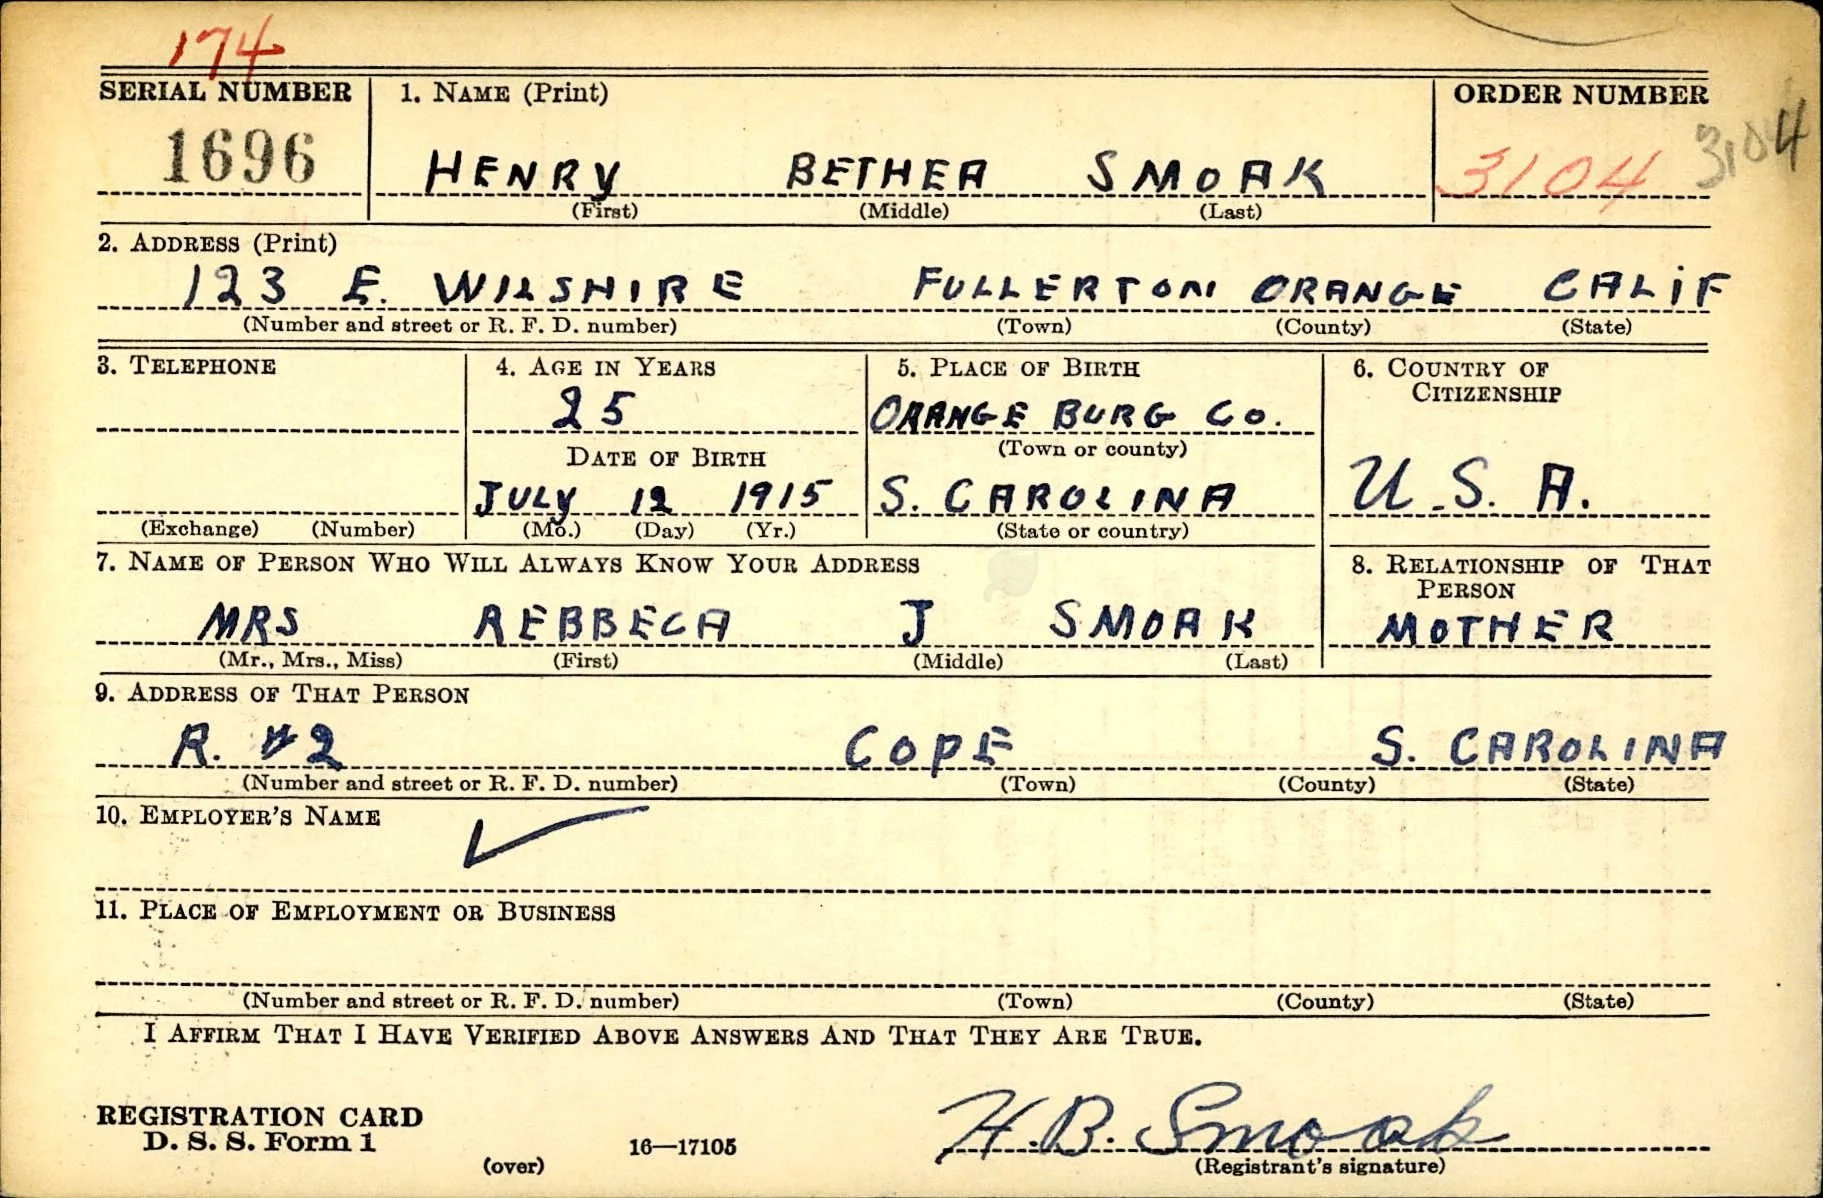 174
SERIAL NUMBER 1. NAME (Print) ORDER NUMBER
1696 HENRY BETHEA SMOAK 3104 3104
(First) (Middle) (Last)
2. ADDRESS (Print)
123 E. WILSHIRE FULLERTON ORANGE CALIF
(Number and street or R. F. D. number) (Town) (County) (State)
3. TELEPHONE 4. AGE IN YEARS 5. PLACE OF BIRTH 6. COUNTRY OF CITIZENSHIP
25 ORANGE BURG CO.
DATE OF BIRTH (Town or county)
JULY 12 1915 S. CAROLINA U.S.A.
(Exchange) (Number) (Mo.) (Day) (Yr.) (State or country)
7. NAME OF PERSON WHO WILL ALWAYS KNOW YOUR ADDRESS 8. RELATIONSHIP OF THAT PERSON
MRS REBBECA J SMOAK MOTHER
(Mr., Mrs., Miss) (First) (Middle) (Last)
9. ADDRESS OF THAT PERSON
R. #2 COPE S. CAROLINA
(Number and street or R. F. D. number) (Town) (County) (State)
10. EMPLOYER'S NAME
11. PLACE OF EMPLOYMENT OR BUSINESS
(Number and street or R. F. D. number) (Town) (County) (State)
I AFFIRM THAT I HAVE VERIFIED ABOVE ANSWERS AND THAT THEY ARE TRUE.
REGISTRATION CARD
D. S. S. Form 1 16—17105 H. B. Smoak
(over) (Registrant's signature)